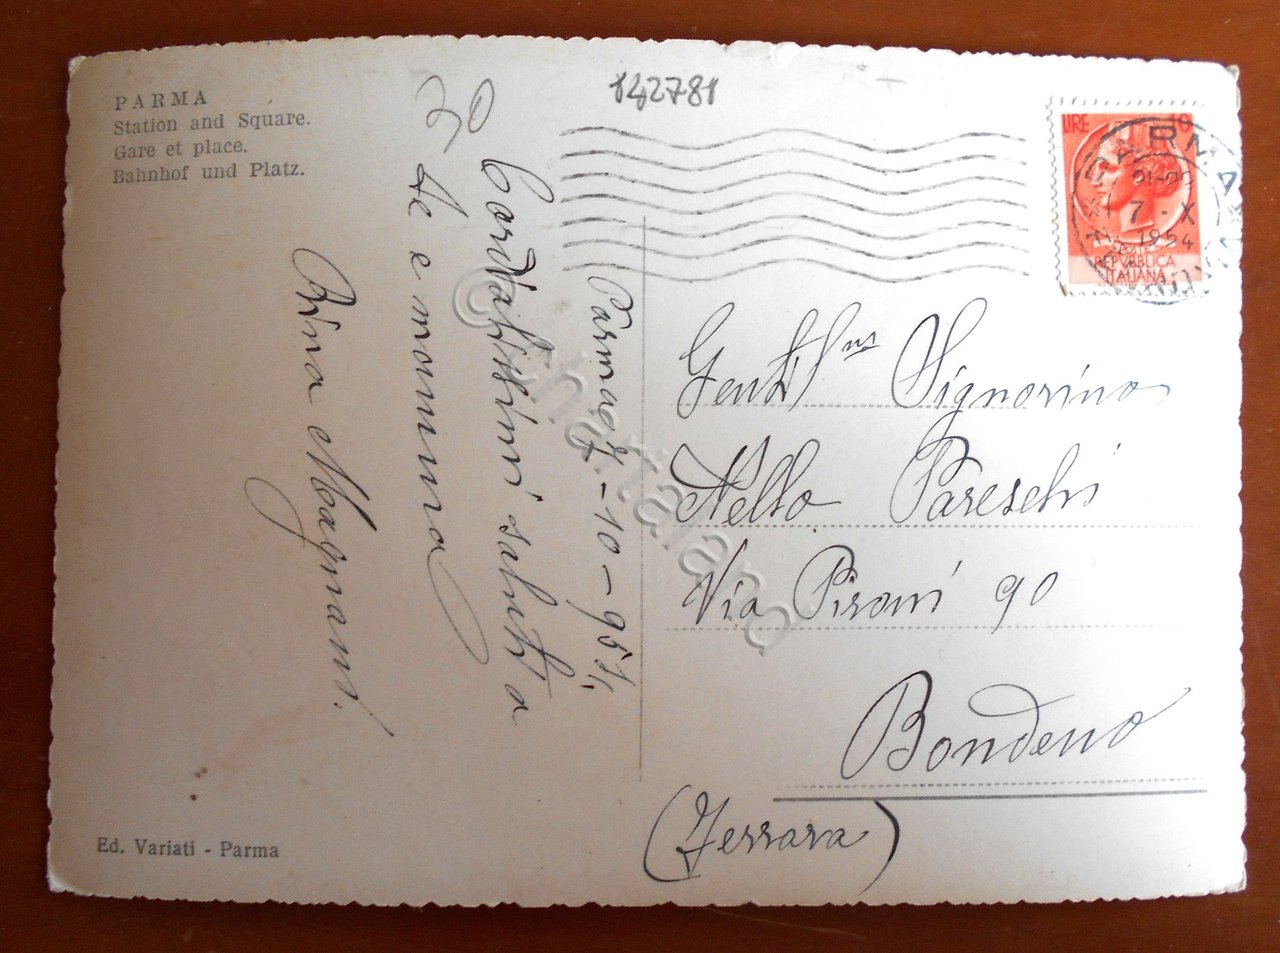 PARMA
Station and Square.
Gare et place.
Bahnhof und Platz.
142781
LIRE 10
PARMA
7 - X
1954
REPVBBLICA
ITALIANA
Parma 7-10-954
Cordialissimi saluti a
Te e mamma
Rina Magnani.
Gent Signorino
Nello Pareschi
Via Pironi 90
Bondeno
(Ferrara)
Ed. Variati - Parma
© chartaland